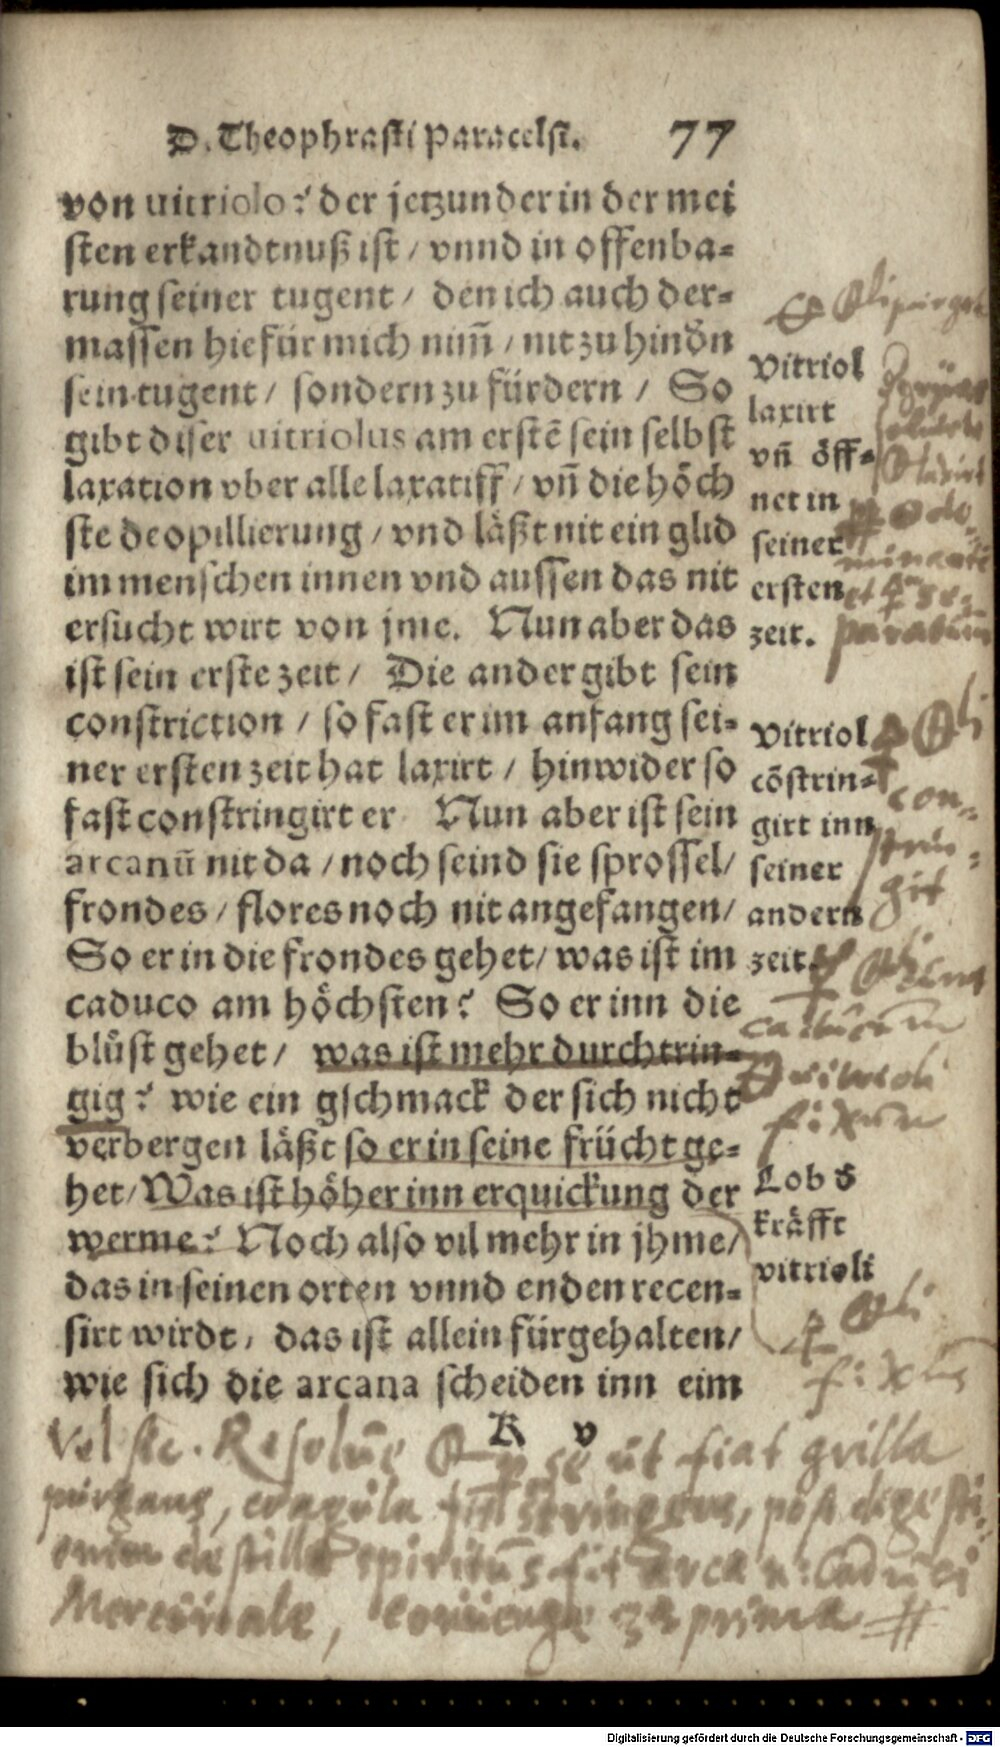 D. Theophrasti Paracelsi. 77
von uitriolo? der jetzunder in der mei
sten erkandtnuß ist / vnnd in offenba-
rung seiner tugent / den ich auch der-
massen hie für mich nim̄ / nit zu hindn̄
sein tugent / sondern zu fürdern / So
gibt diser uitriolus am erstē sein selbst
laxation vber alle laxatiff / vn̄ die höch
ste deopillierung / vnd läßt nit ein glid
im menschen innen vnd aussen das nit
ersucht wirt von jme. Nun aber das
ist sein erste zeit / Die ander gibt sein
constriction / so fast er im anfang sei-
ner ersten zeit hat laxirt / hinwider so
fast constringirt er Nun aber ist sein
arcanū nit da / noch seind sie sprossel /
frondes / flores noch nit angefangen /
So er in die frondes gehet / was ist im
caduco am höchsten? So er inn die
blüst gehet / was ist mehr durchtrin-
gig? wie ein gschmack der sich nicht
verbergen läßt so er in seine frücht ge-
het / Was ist höher inn erquickung der
werme? Noch also vil mehr in jhme /
das in seinen orten vnnd enden recen-
sirt wirdt / das ist allein fürgehalten /
wie sich die arcana scheiden inn eim
K v
Vitriol
laxirt
vn̄ öff-
net in
seiner
ersten
zeit.
Vitriol
cōstrin-
girt inn
seiner
andern
zeit.
Lob d
kräfft
vitrioli
con-
strin-
git
caducum
vitrioli
fixum
ut fiat grilla
purgans,
spiritus fit
Mercuriale,
prima
Digitalisierung gefördert durch die Deutsche Forschungsgemeinschaft - DFG